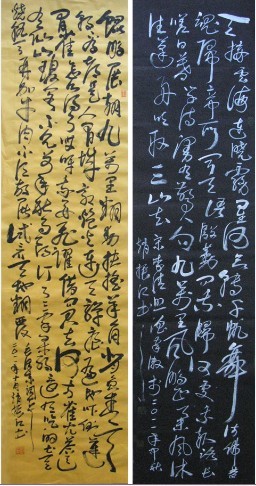 天接雲海連曉霧星河欲轉千帆舞仿佛夢
魂歸帝所聞天語殷勤問我歸何處我報路長
嗟日暮學詩謾有驚人句九萬里風鵬正舉風休
住蓬舟吹取三山去宋李清照漁家傲
趙振江書
鯤鵬展翅九萬里翻動扶搖羊角背負青天
朝下看都是人間城郭炮火連天彈痕遍地嚇倒蓬
間雀怎麼得了哎呀我要飛躍借問君去何方雀兒答
道有仙山瓊閣不見前年秋月朗訂了三家條約還有吃的土豆
燒熟了再加牛肉不須放屁試看天地翻覆